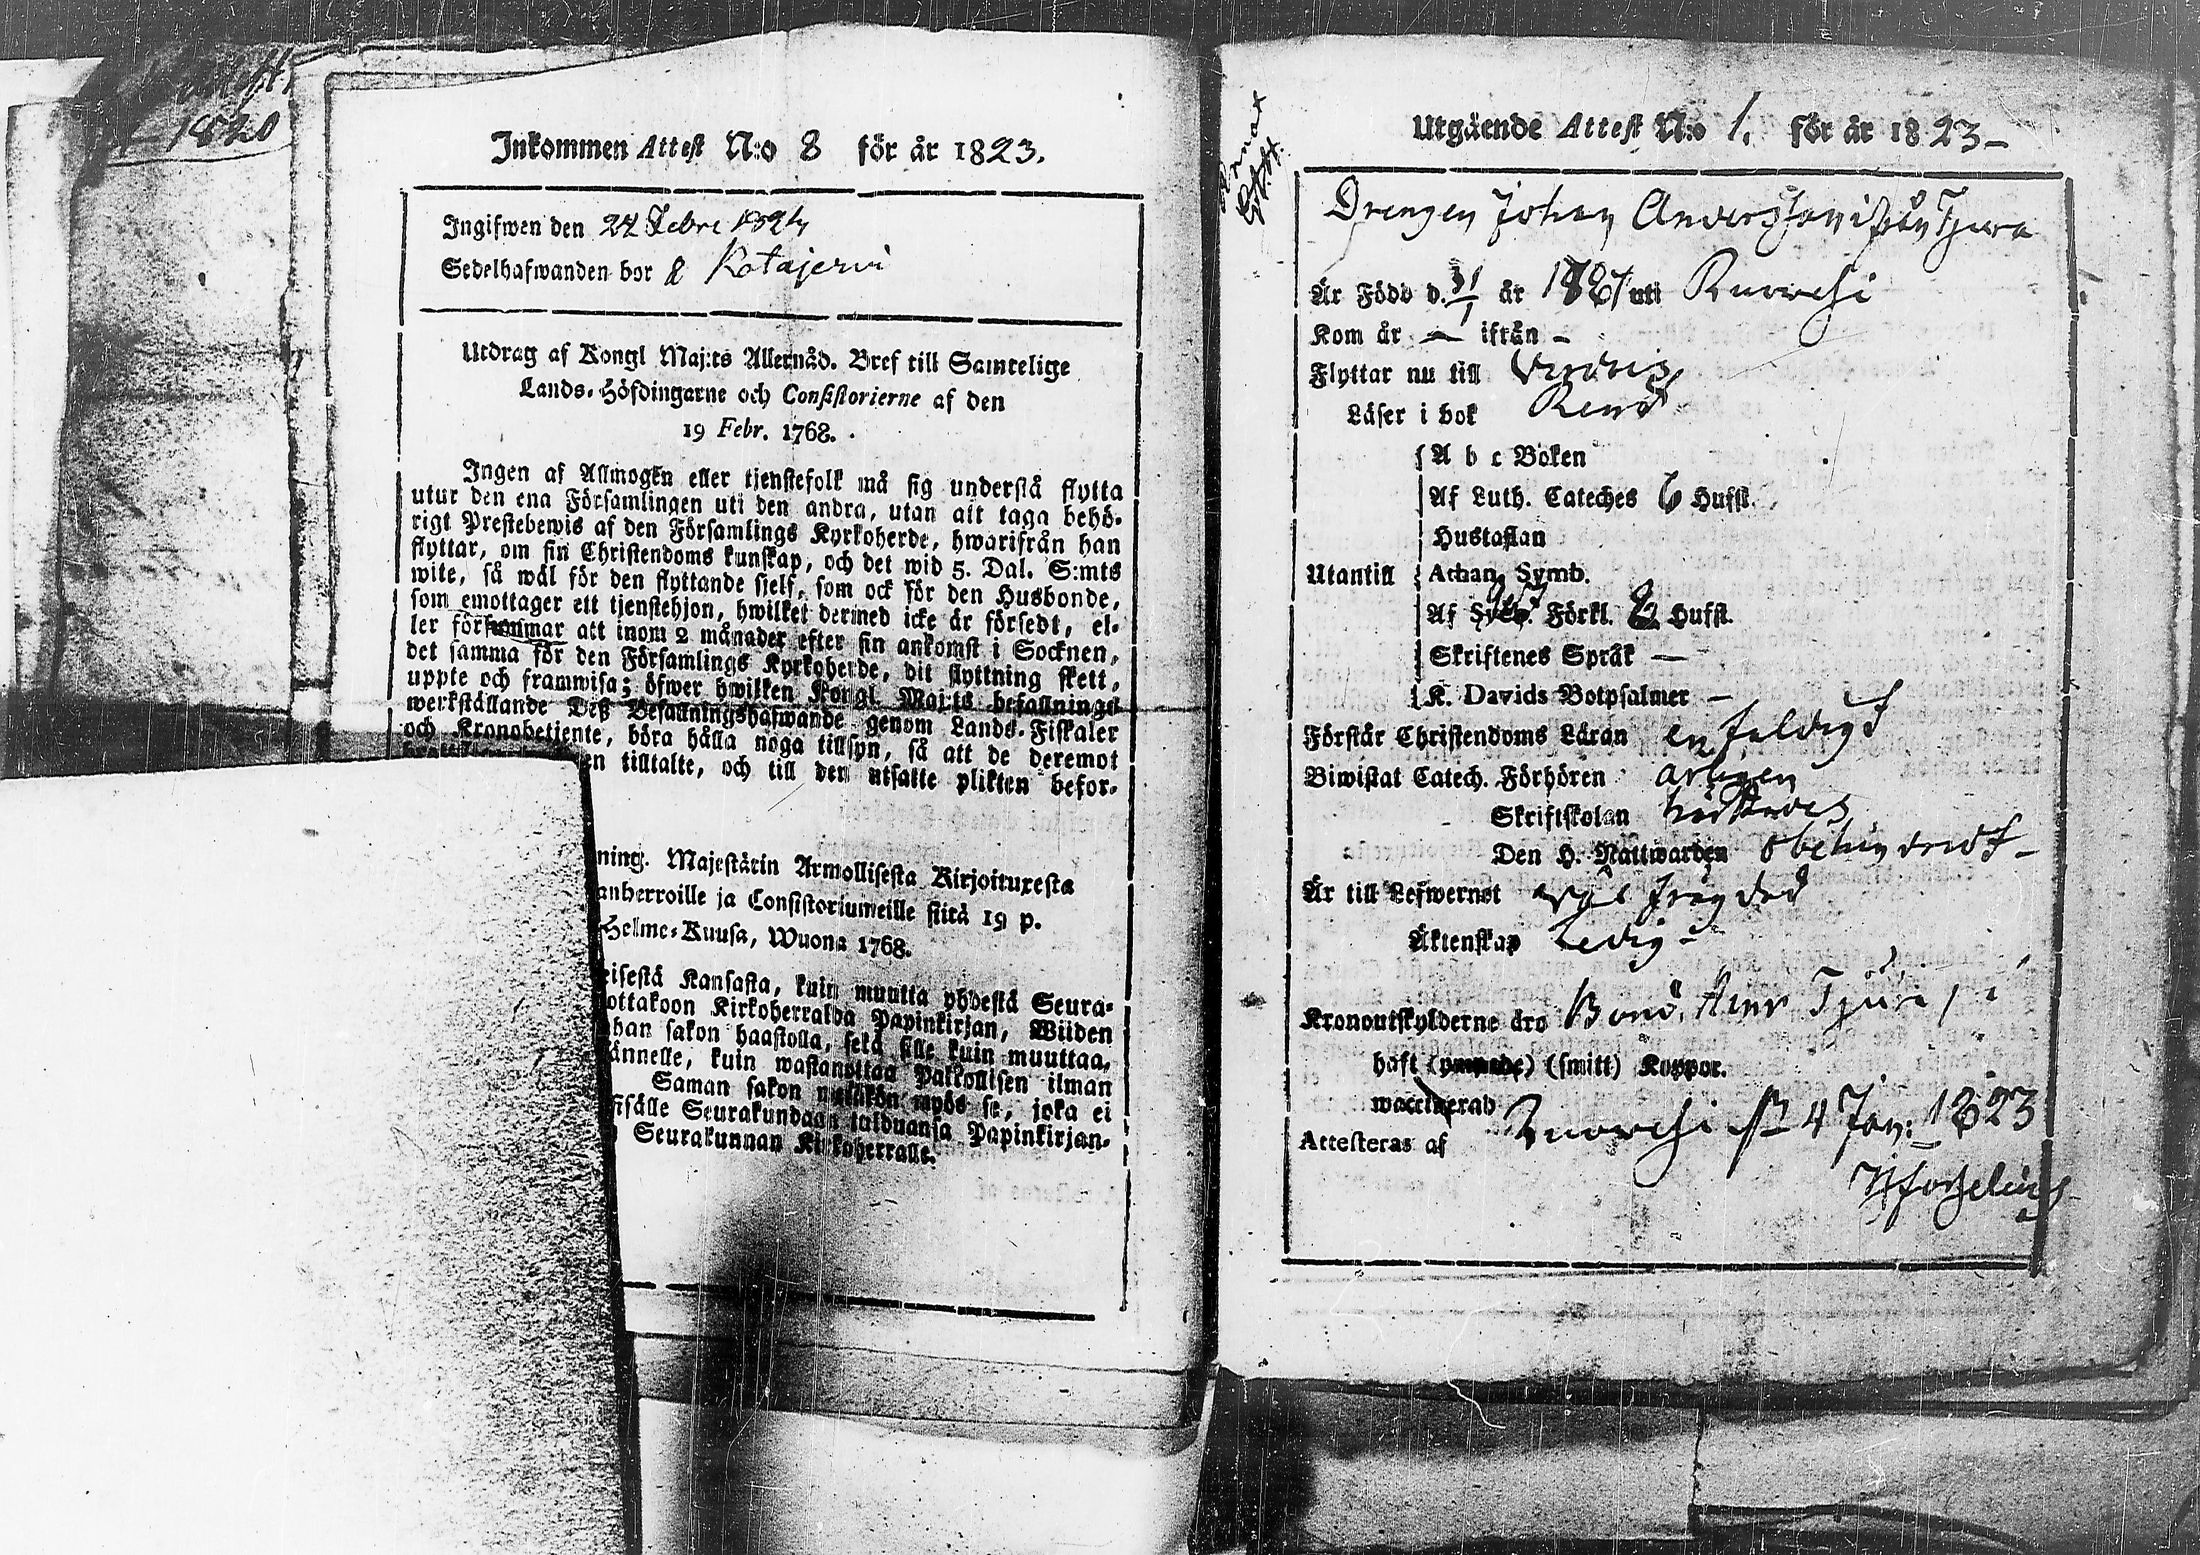 1820
Inkommen Attest N:o 8 för år 1823.
Ingifwen den 24 Febr 1824
Sedelhafwanden bor Kotajerwi
Utdrag af Kongl Maj:ts Allernåd. Bref till Samtelige
Lands-Höfdingarne och Consistorierne af den
19 Febr. 1768.
Ingen af Allmogen eller tjenstefolk må sig understå flytta
utur den ena Församlingen uti den andra, utan att taga behö-
rigt Prestebewis af den Församlings Kyrkoherde, hwarifrån han
flyttar, om sin Christendoms kunskap, och det wid 5. Dal. S:mts
wite, så wäl för den flyttande sjelf, som ock för den Husbonde,
som emottager ett tjenstehjon, hwilket dermed icke är försedt, el-
ler försummar att inom 2 månader efter sin ankomst i Socknen,
det samma för den Församlings Kyrkoherde, dit flyttning skett,
uppte och framwisa; öfwer hwilken Kongl. Maj:ts befallnings
werkställande Deß Befallningshafwande genom Lands-Fiskaler
och Kronobetjente, böra hålla noga tillsyn, så att de deremot
en tilltalte, och till den utsatte plikten befor-
ning. Majestätin Armollisesta Kirjoituxesta
anherroille ja Consistoriumeille siitä 19 p.
Helme-Kuusa, Wuona 1768.
eisestä Kansasta, kuin muutta yhdestä Seura-
ottakoon Kirkoherralda Papinkirjan, Wiiden
han sakon haastolla, sekä sille kuin muuttaa,
ännelle, kuin wastanottaa Palkollisen ilman
Saman sakon myös se, joka ei
sisälle Seurakundaan tulduansa Papinkirjan-
Seurakunnan Kirkoherralle.
Utgående Attest N:o 1. för år 1823
Drengen Johan Andersson ifrån Tjura
Är Född d. 31/1 år uti Ruovesi
Kom år — ifrån —
Flyttar nu till
Läser i bok Rent
A b c Boken
Af Luth. Cateches 6 Hufst.
Hustaflan
Utantill Athan. Symb.
Af Förkl. 2 Hufst.
Skriftenes Språk —
K. Davids Botpsalmer —
Förstår Christendoms Läran enfaldigt
Biwistat Catech. Förhören årligen
Skriftskolan
Den H. Nattwarden obehindradt —
Är till Lefwernet wäl frägdad
Äktenskap Ledig —
Kronoutskylderne äro
haft (ympade) (smitt) Koppor.
waccinerad
Attesteras af Ruovesi 4 Jan: 1823